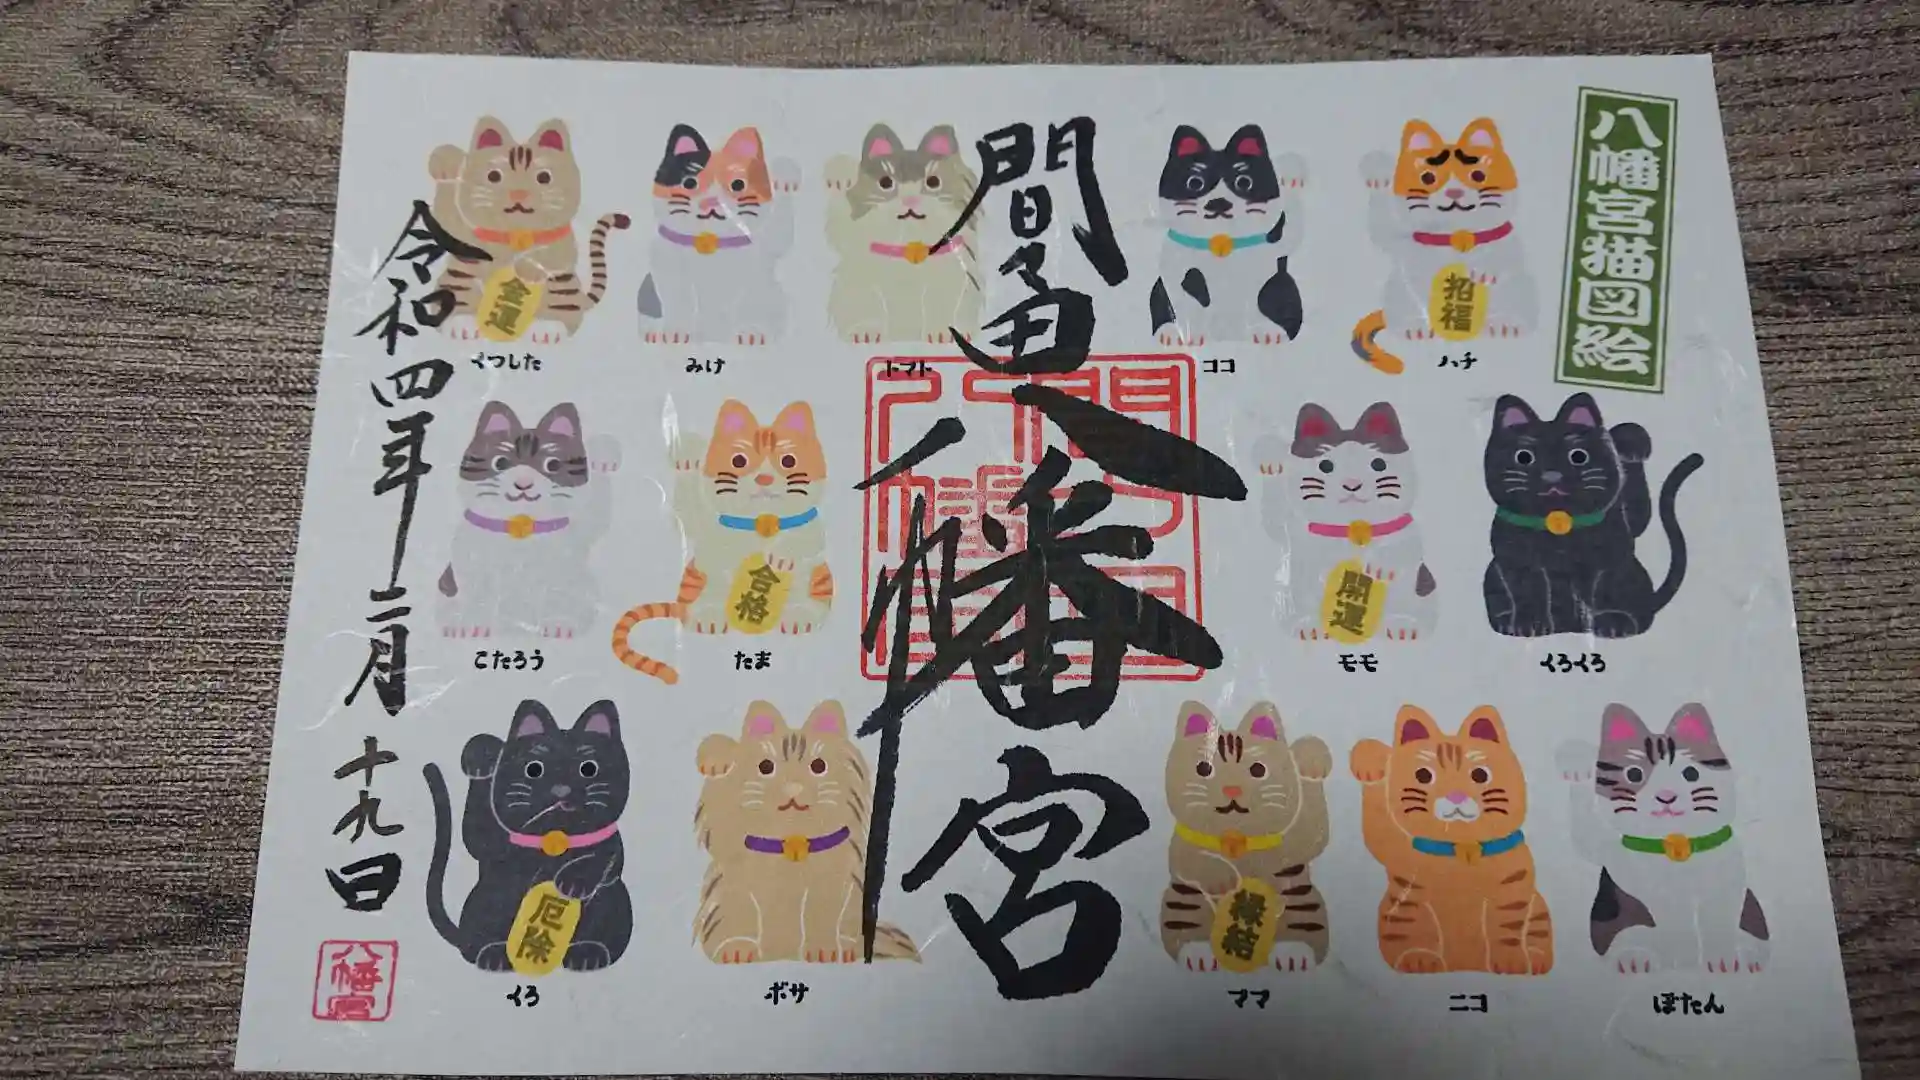 八幡宮猫図絵
間々田八幡宮
令和四年二月十九日
八幡宮
くつした
みけ
トマト
ココ
ハチ
こたろう
たま
モモ
くろくろ
くろ
ボサ
ママ
ニコ
ぼたん
金運
招福
合格
開運
厄除
縁結